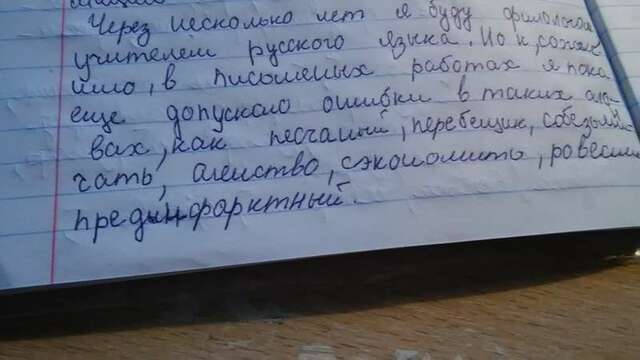 Через несколько лет я буду филологом
учителем русского языка. Но к сожале
нию, в письменных работах я пока
еще допускаю ошибки в таких сло
вах, как песчаный, перебежчик,
чать, агенство, сэкономить, ровесн
предынфарктный.